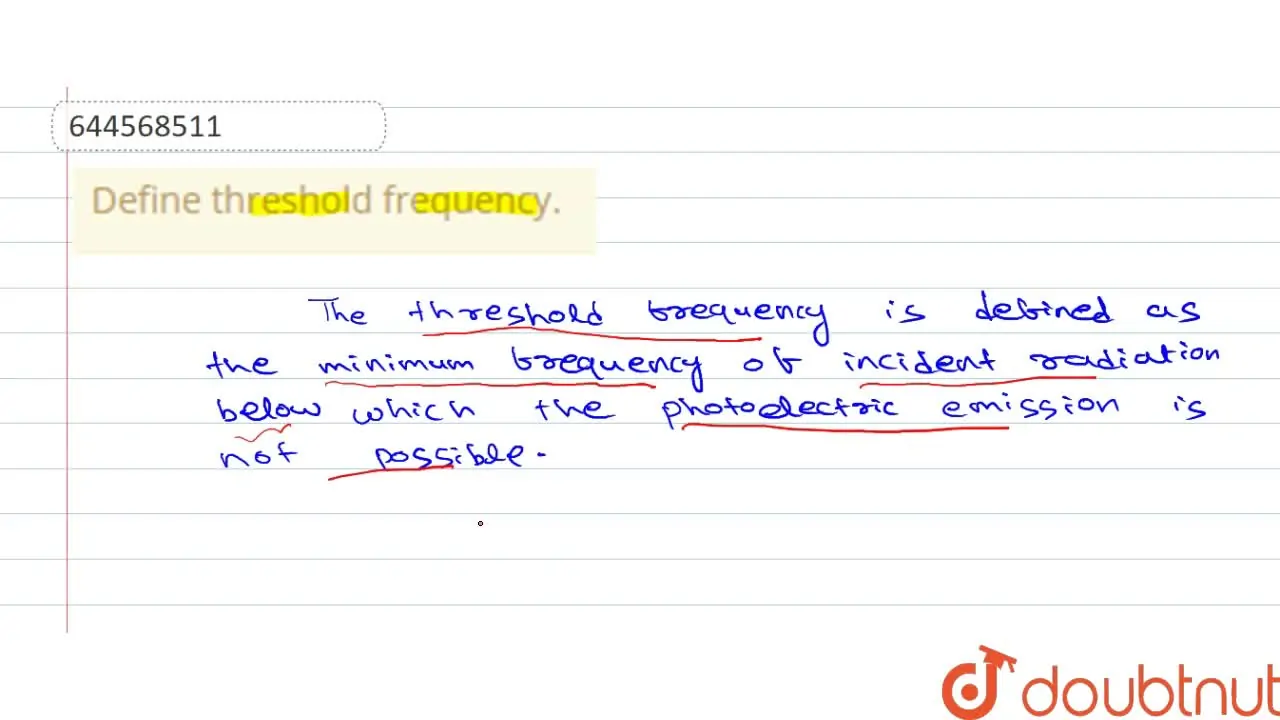 644568511
Define threshold frequency.
The threshold frequency is defined as
the minimum frequency of incident radiation
below which the photoelectric emission is
not possible.
doubtnut